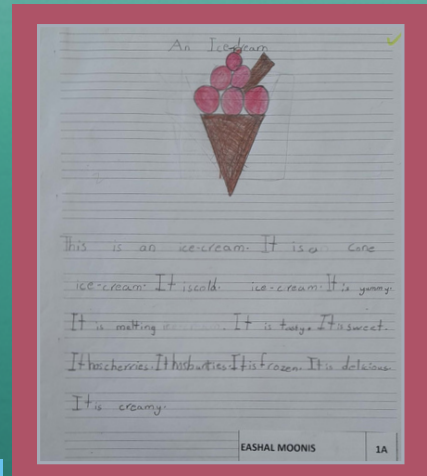 An Icecream
This is an ice-cream. It is a cone
ice-cream. It iscold. ice-cream. It is yummy.
It is melting It is tasty. It is sweet.
It hascherries. It has It is frozen. It is delcious
It is creamy.
EASHAL MOONIS 1A